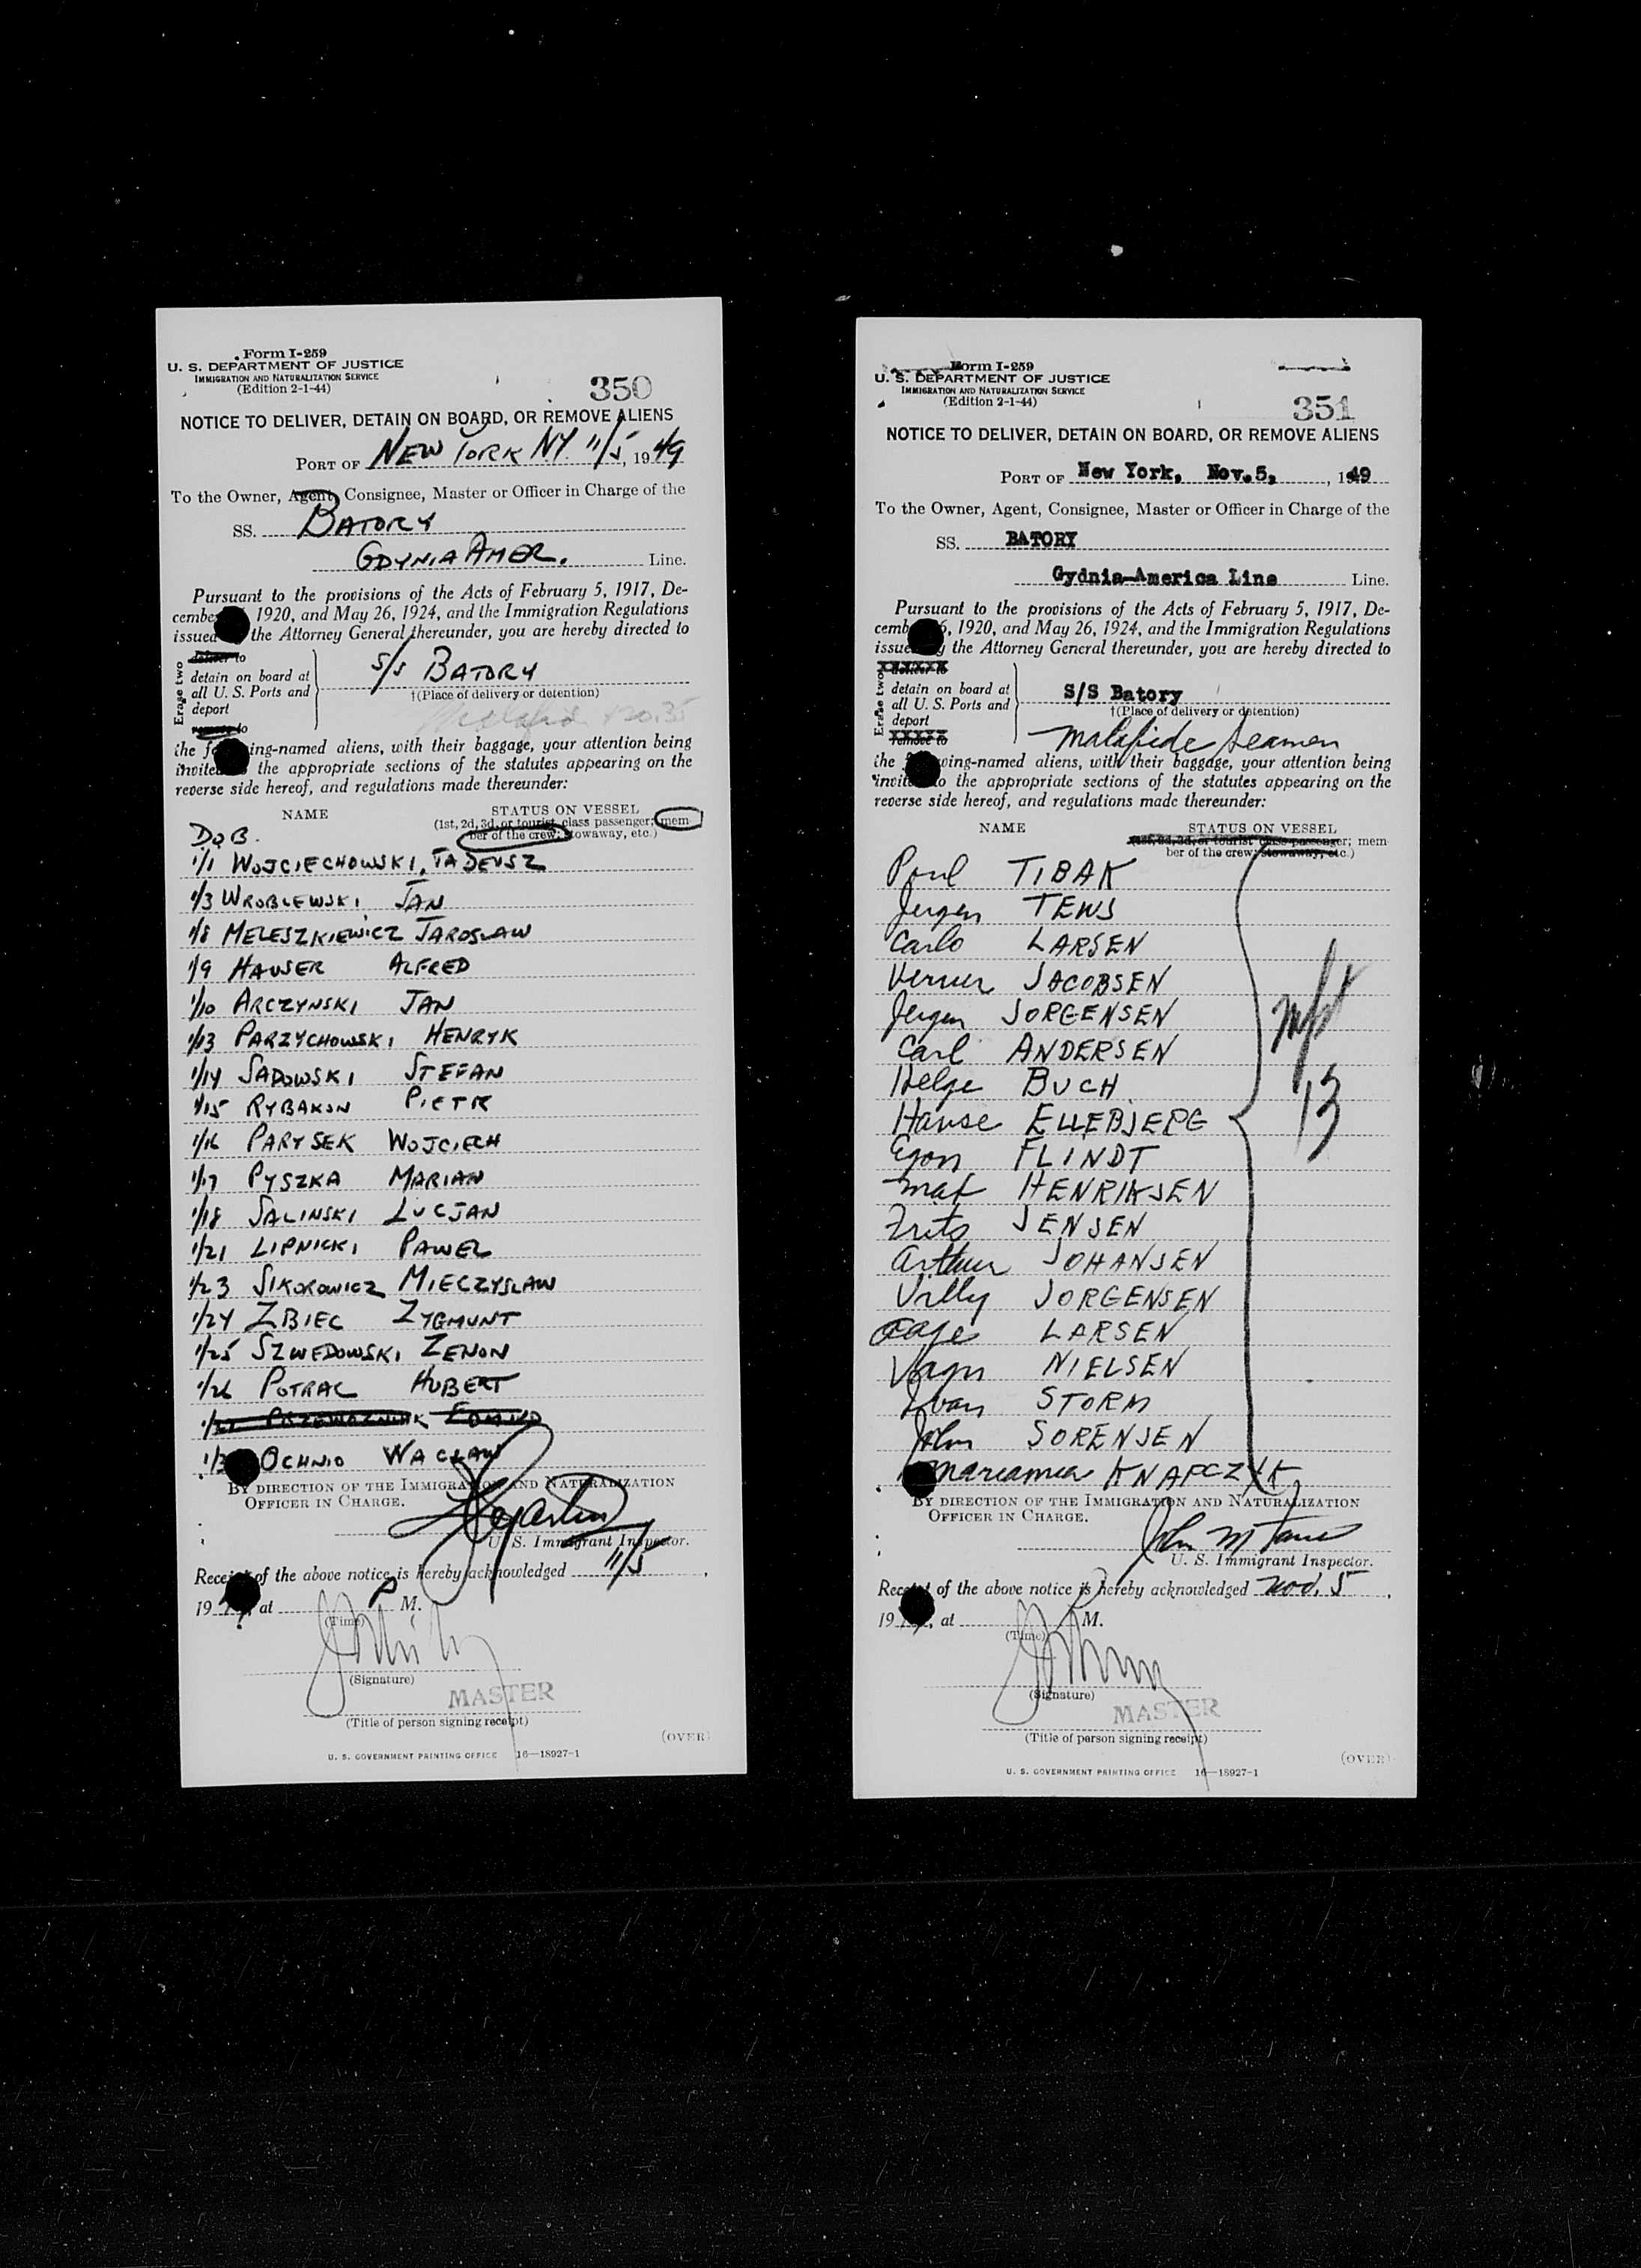 Form I-259
U. S. DEPARTMENT OF JUSTICE
IMMIGRATION AND NATURALIZATION SERVICE
(Edition 2-1-44)
350
NOTICE TO DELIVER, DETAIN ON BOARD, OR REMOVE ALIENS
PORT OF NEW YORK NY. 11/5, 1949
To the Owner, Agent, Consignee, Master or Officer in Charge of the
SS. BATORY
GDYNIA AMER. Line.
Pursuant to the provisions of the Acts of February 5, 1917, De-
cember 1920, and May 26, 1924, and the Immigration Regulations
issued the Attorney General thereunder, you are hereby directed to
Erase two
deliver to
detain on board at
all U. S. Ports and
deport
remove to
S/S BATORY
†(Place of delivery or detention)
the ing-named aliens, with their baggage, your attention being
invited the appropriate sections of the statutes appearing on the
reverse side hereof, and regulations made thereunder:
NAME STATUS ON VESSEL
(1st, 2d, 3d, or tourist class passenger; mem-
ber of the crew; stowaway, etc.)
DOB.
1/1 WOJCIECHOWSKI, TADEUSZ
1/3 WROBLEWSKI JAN
1/8 MELESZKIEWICZ JAROSLAW
1/9 HAUSER ALFRED
1/10 ARCZYNSKI JAN
1/13 PARZYCHOWSKI HENRYK
1/14 SADOWSKI STEFAN
1/15 RYBAKON PIETR
1/16 PARYSEK WOJCIECH
1/17 PYSZKA MARIAN
1/18 SALINSKI LUCJAN
1/21 LIPNICKI PAWEL
1/23 SIKOROWICZ MIECZYSLAW
1/24 ZBIEC ZYGMUNT
1/25 SZWEDOWSKI ZENON
1/26 POTRAC HUBERT
PRZEWOZNIAK
OCHNIO WACLAW
BY DIRECTION OF THE IMMIGRATION AND NATURALIZATION
OFFICER IN CHARGE.
U. S. Immigrant Inspector.
Receipt of the above notice is hereby acknowledged 11/5,
19 , at P M.
(Time)
(Signature)
MASTER
(Title of person signing receipt)
(OVER)
U. S. GOVERNMENT PRINTING OFFICE 16—18927-1
Form I-259
U. S. DEPARTMENT OF JUSTICE
IMMIGRATION AND NATURALIZATION SERVICE
(Edition 2-1-44)
351
NOTICE TO DELIVER, DETAIN ON BOARD, OR REMOVE ALIENS
PORT OF New York, Nov.5, , 1949
To the Owner, Agent, Consignee, Master or Officer in Charge of the
SS. BATORY
Gydnia-America Line Line.
Pursuant to the provisions of the Acts of February 5, 1917, De-
cemb 6, 1920, and May 26, 1924, and the Immigration Regulations
issued by the Attorney General thereunder, you are hereby directed to
Erase two
deliver to
detain on board at
all U. S. Ports and
deport
remove to
S/S Batory
†(Place of delivery or detention)
Malafide Seamen
the wing-named aliens, with their baggage, your attention being
invited to the appropriate sections of the statutes appearing on the
reverse side hereof, and regulations made thereunder:
NAME STATUS ON VESSEL
(1st, 2d, 3d, or tourist class passenger; mem-
ber of the crew; stowaway, etc.)
Poul TIBAK
Jergen TEWS
Carlo LARSEN
Verner JACOBSEN
Jergen JORGENSEN
Carl ANDERSEN
Helge BUCH
Hanse ELLEBJERG
Egon FLINDT
HENRIKSEN
Frits JENSEN
Arthur JOHANSEN
Villy JORGENSEN
Aage LARSEN
Vagn NIELSEN
Ivan STORM
John SORENSEN
KNAPCZYK
13
BY DIRECTION OF THE IMMIGRATION AND NATURALIZATION
OFFICER IN CHARGE.
U. S. Immigrant Inspector.
Receipt of the above notice is hereby acknowledged Nov. 5,
19 , at P M.
(Time)
(Signature)
MASTER
(Title of person signing receipt)
(OVER)
U. S. GOVERNMENT PRINTING OFFICE 16—18927-1